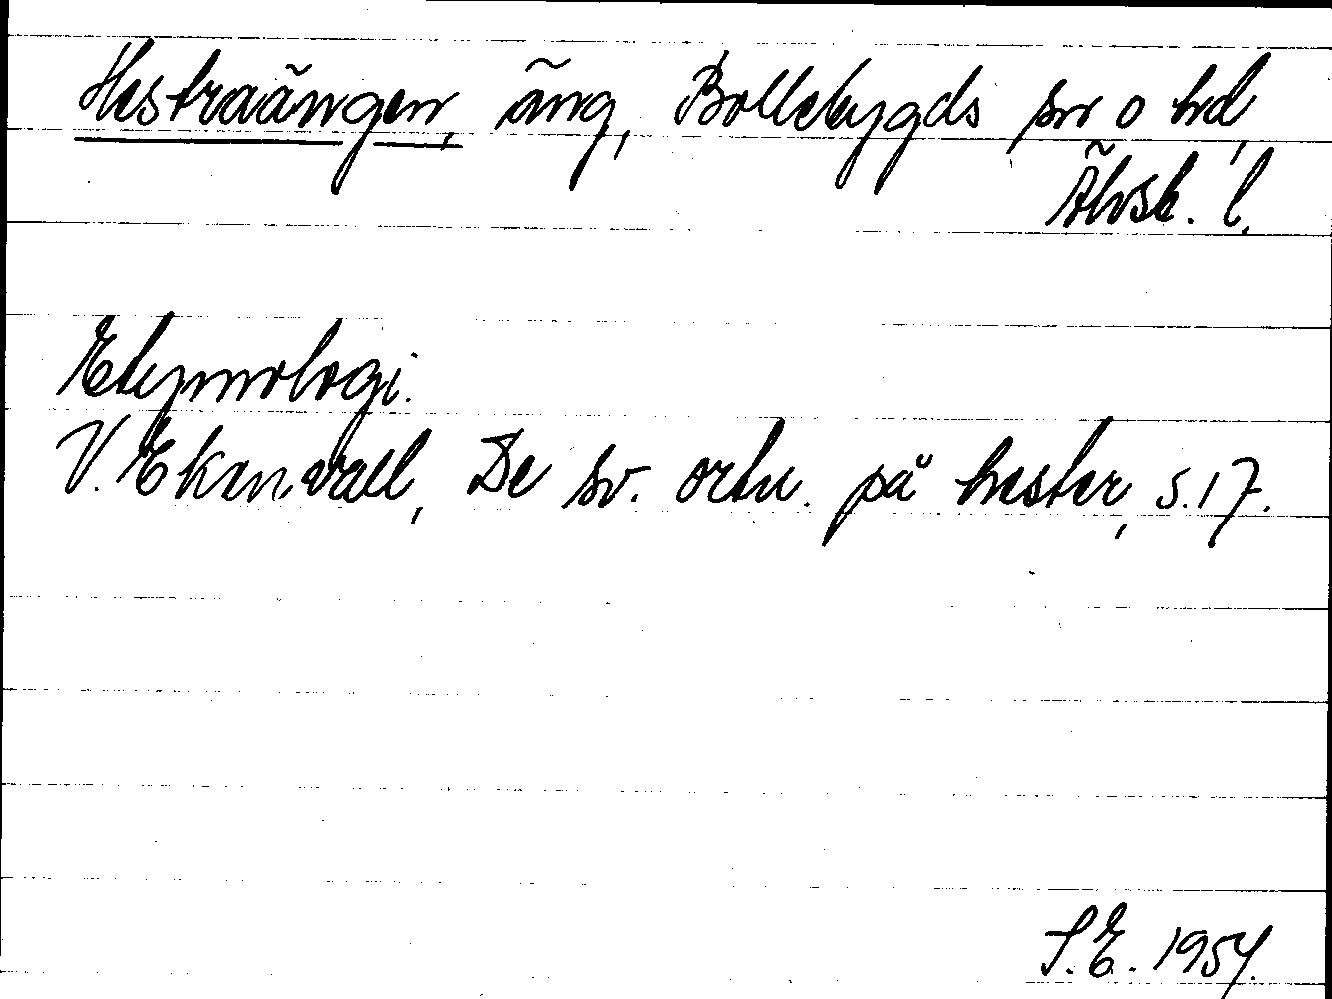 Hestraängen, äng, Bollebygds sn o hd,
Älvsb. l.
Etymologi.
V. Ekenvall, De sv. ortn. på hester, s. 17.
S. E. 1954.